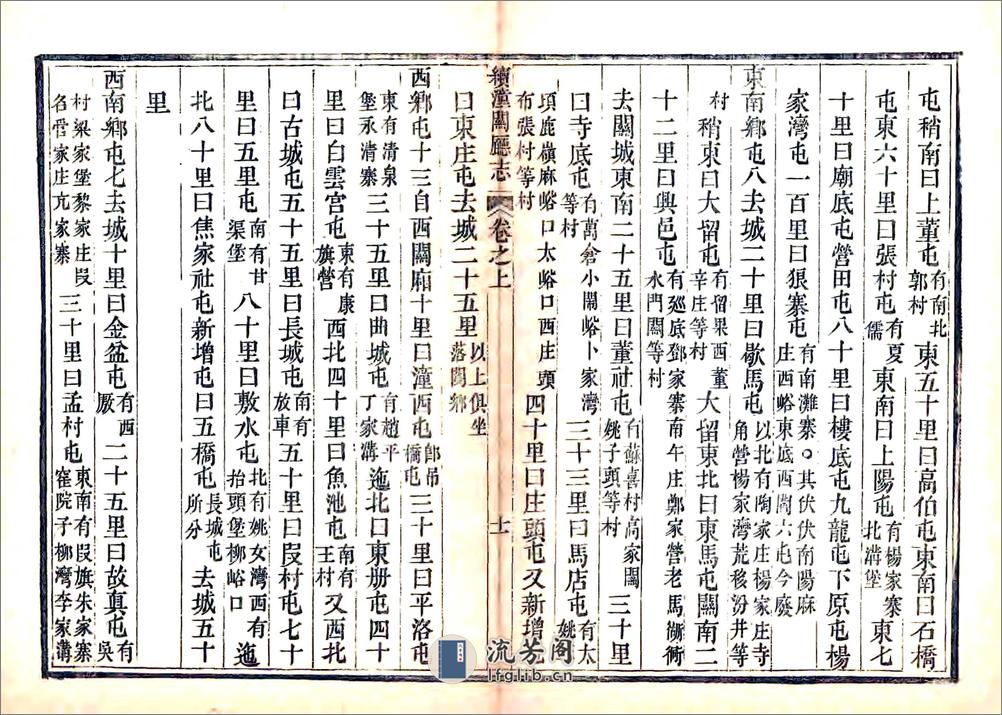 屯稍南曰上董屯有南北郭村東五十里曰高伯屯東南曰石橋
屯東六十里曰張村屯有夏儒東南曰上陽屯有楊家寨北溝堡東七
十里曰廟底屯營田屯八十里曰樓底屯九龍屯下原屯楊
家灣屯一百里曰狠寨屯有南灘寨。其伏伏南陽麻庄西峪東底西閿六屯今廢
東南鄉屯八去城二十里曰歇馬屯以北有陶家庄楊家庄寺角營楊家灣荒移汾井等
村稍東曰大留屯有留果西董辛庄等村大留東北曰東馬屯關南二
十二里曰興邑屯有廵底鄧家寨南午庄鄭家營老馬衚衕水門關等村
去關城東南二十五里曰董社屯有蘇喜村高家閿姚子頭等村三十里
曰寺底屯有萬倉小閿峪卜家灣等村三十三里曰馬店屯有太姚
項鹿嶺麻峪口太峪口西庄頭布張村等村四十里曰庄頭屯又新增屯
曰東庄屯去城二十五里以上俱坐落閿鄉
續潼關廳志 卷之上 十一
西鄉屯十三自西關廂十里曰潼西屯郎吊橋屯三十里曰平洛屯
東有清泉堡永清寨三十五里曰曲城屯有趙平了家溝迤北曰東册屯四十
里曰白雲宫屯東有康旗營西北四十里曰魚池屯南有王村又西北
曰古城屯五十五里曰長城屯南有放車五十里曰段村屯七十
里曰五里屯南有甘渠堡八十里曰敷水屯北有姚女灣西有抬頭堡柳峪口迤
北八十里曰焦家社屯新增屯曰五橋屯長城屯所分去城五十
里
西南鄉屯七去城十里曰金盆屯有西厫二十五里曰故真屯有吳
村梁家堡黎家庄段名營家庄亢家寨三十里曰孟村屯東南有段旗朱家寨窑院子柳灣李家溝
流芳阁
lfglib.cn